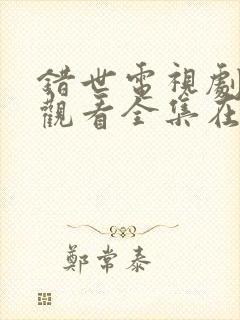 錯世電視劇
觀看全集在
鄭常泰